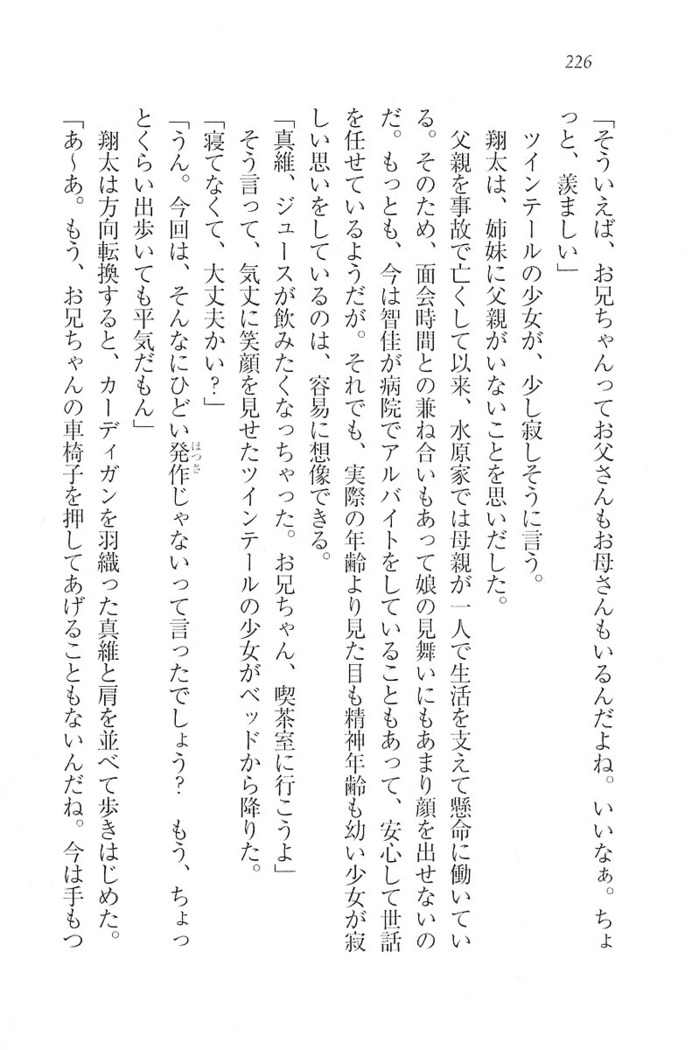 226
「そういえば、お兄ちゃんってお父さんもお母さんもいるんだよね。いいなぁ。ちょ
っと、羨ましい」
ツインテールの少女が、少し寂しそうに言う。
翔太は、姉妹に父親がいないことを思いだした。
父親を事故で亡くして以来、水原家では母親が一人で生活を支えて懸命に働いてい
る。そのため、面会時間との兼ね合いもあって娘の見舞いにもあまり顔を出せないの
だ。もっとも、今は智佳が病院でアルバイトをしていることもあって、安心して世話
を任せているようだが。それでも、実際の年齢より見た目も精神年齢も幼い少女が寂
しい思いをしているのは、容易に想像できる。
「真維、ジュースが飲みたくなっちゃった。お兄ちゃん、喫茶室に行こうよ」
そう言って、気丈に笑顔を見せたツインテールの少女がベッドから降りた。
「寝てなくて、大丈夫かい？」
「うん。今回は、そんなにひどい発作じゃないって言ったでしょう？　もう、ちょっ
ほっさ
とくらい出歩いても平気だもん」
翔太は方向転換すると、カーディガンを羽織った真維と肩を並べて歩きはじめた。
「あ〜あ。もう、お兄ちゃんの車椅子を押してあげることもないんだね。今は手もつ